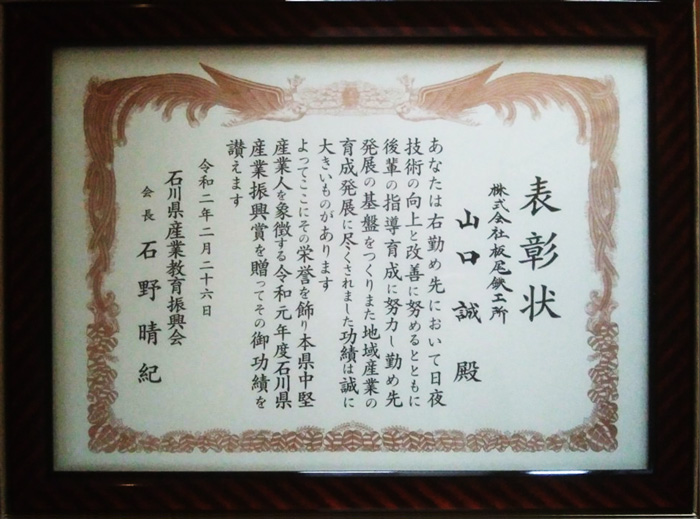 表彰状
株式会社板尾鉄工所
山口誠 殿
あなたは右勤め先において日夜
技術の向上と改善に努めるとともに
後輩の指導育成に努力し勤め先
発展の基盤をつくりまた地域産業の
育成発展に尽くされました功績は誠に
大きいものがあります
よってここにその栄誉を飾り本県中堅
産業人を象徴する令和元年度石川県
産業振興賞を贈ってその御功績を
讃えます
令和二年二月二十六日
石川県産業教育振興会
会長 石野晴紀